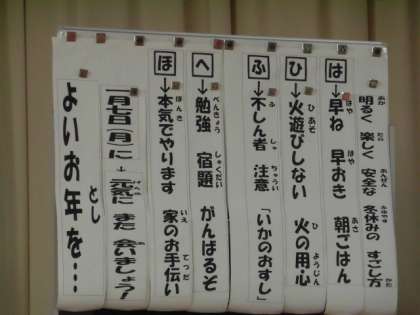 明るく 楽しく 安全な 冬休みの すごし方
は→早ね 早おき 朝ごはん
ひ→火遊びしない 火の用心
ふ→不しん者 注意 「いかのおすし」
へ→勉強 宿題 がんばるぞ
ほ→本気でやります 家のお手伝い
一月七日(月)に→元気に また 会いましょう!
よいお年を…